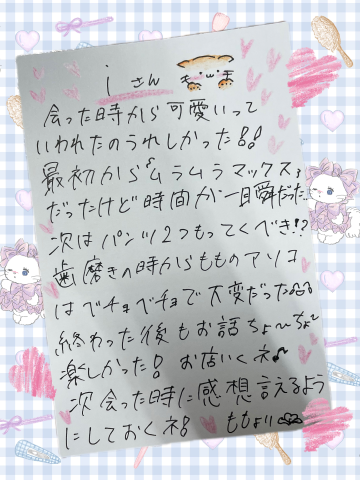 iさん
会った時から可愛いって
いわれたのうれしかった!!
最初からムラムラマックス
だったけど時間が一瞬だった…
次はパンツ2つもってくべき!?
歯磨きの時からもものアソコ
はベチョベチョで大変だった
終わった後もお話ちょ〜ちょ〜
楽しかった! お店いくネ♪
次会った時に感想言えるよう
にしておくネ! ももより